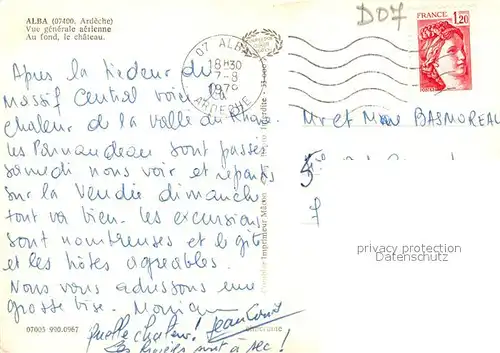 ALBA (07400, Ardèche)
Vue générale aérienne
Au fond, le château.
D07
07 ALBA
18H30
7-8
1979
ARDECHE
FRANCE
1,20
Après la tiédeur du
Massif Central voici la
chaleur de la vallée du Rhône
les Bonnaudeau sont passés
samedi nous voir et repartis
sur la Vendée dimanche
tout va bien. les excursions
sont nombreuses et le gîte
et les hôtes agréables.
Nous vous adressons une
grosse bise. Monique
quelle chaleur! Jean
les rivières sont à sec!
Mr et Mme BASMOREAU
privacy protection
Datenschutz
Combier Imprimeur Mâcon
07005 990.0967